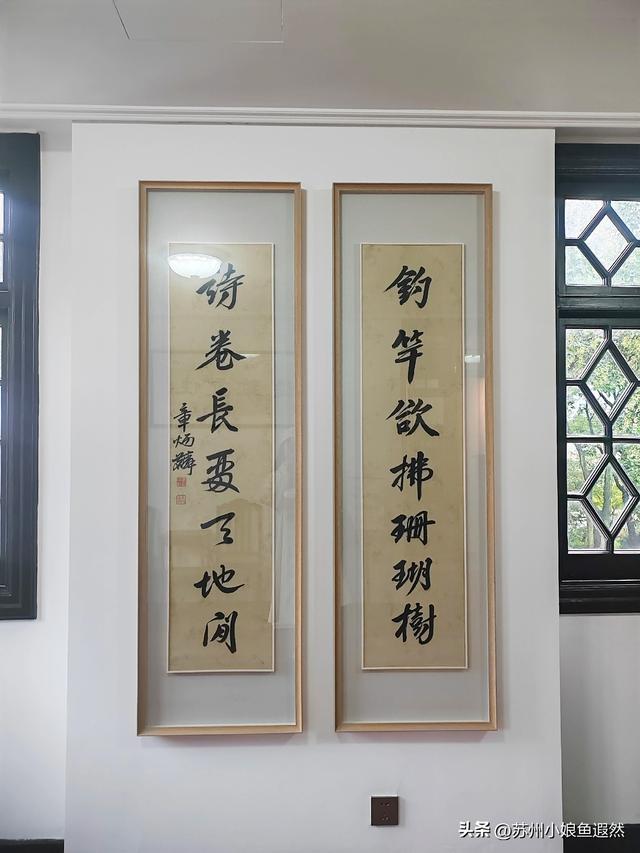 釣竿欲拂珊瑚樹
詩卷長留天地間
章炳麟
头条 @苏州小娘鱼遐然